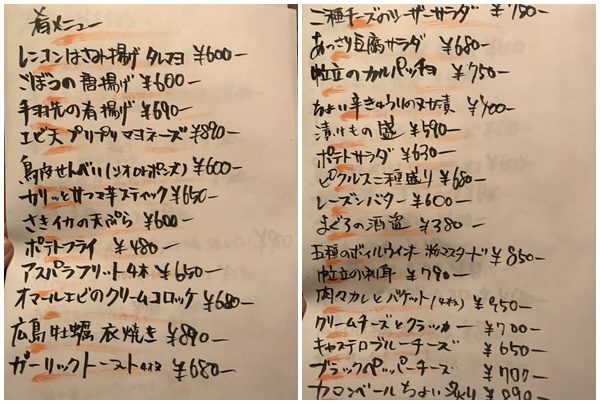 肴メニュー
レンコンはさみ揚げ タルマヨ ¥600-
ごぼうの唐揚げ ¥600-
手羽先の唐揚げ ¥690-
エビ天プリプリマヨネーズ ¥890-
鳥皮せんべい(シオorポンズ) ¥600-
カリッとサツマ芋スティック ¥650-
さきイカの天ぷら ¥600-
ポテトフライ ¥480-
アスパラフリット4本 ¥650-
オマールエビのクリームコロッケ ¥680-
広島牡蠣 衣焼き ¥890-
ガーリックトースト4枚 ¥680-
二種チーズのシーザーサラダ ¥750-
あっさり豆腐サラダ ¥680-
帆立のカルパッチョ ¥750-
ちょい辛きゅうりの又漬 ¥400-
漬けもの盛 ¥590-
ポテトサラダ ¥630-
ピクルス二種盛り ¥680-
レーズンバター ¥600-
まぐろの酒盗 ¥380-
五種のボイルウインナー 粒マスタード ¥850-
帆立の刺身 ¥790-
肉々カレとバゲット(4枚) ¥950-
クリームチーズとクラッカー ¥700-
キャステロブルーチーズ ¥650-
ブラックペッパーチーズ ¥700-
カマンベールちょい炙り ¥890-